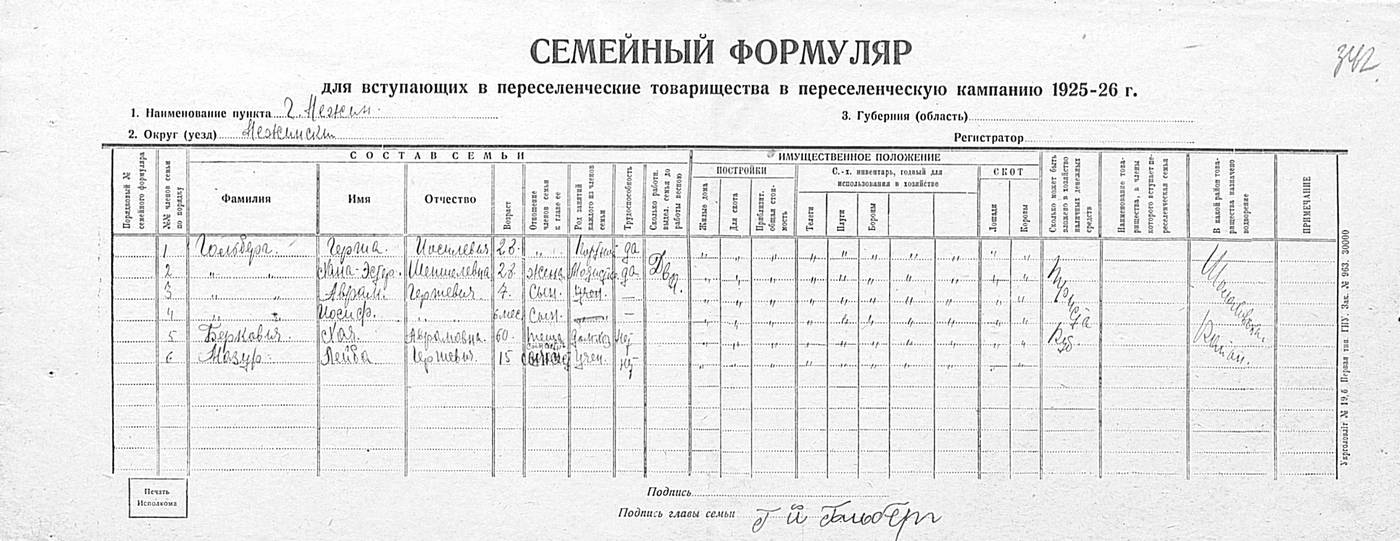 342.
СЕМЕЙНЫЙ ФОРМУЛЯР
для вступающих в переселенческие товарищества в переселенческую кампанию 1925-26 г.
1. Наименование пункта г. Нежин. 3. Губерния (область)
2. Округ (уезд) Нежински Регистратор
СОСТАВ СЕМЬИ ИМУЩЕСТВЕННОЕ ПОЛОЖЕНИЕ
ПОСТРОЙКИ С.-х. инвентарь, годный для использования в хозяйстве СКОТ
Порядковый № семейного формуляра №№ членов семьи по порядку Фамилия Имя Отчество Возраст Отношение членов семьи к главе ее Род занятий каждого из членов семьи Трудоспособность Сколько работн. выдел. семья до работы весною Жилые дома Для скота Приблизит. общая стоимость Телеги Плуги Бороны Лошади Коровы Сколько может быть вложено в хозяйство наличных денежных средств Наименование товарищества, в члены которого вступает переселенческая семья В какой район товарищества назначено водворение ПРИМЕЧАНИЕ
1 Гольберг. Герша Иосилевич 28. " да
2 " " Хана-Эстер. 28 жена да Два.
3 " " Аврам. Гершевич. 7. Сын. Учен. —
4 " " Иосиф. " " 6 мес. Сын. —
5 Беркович. Хая. Аврамовна. 60. теща нет
6 Мазур. Лейба Гершевич. 15 Учен. нет
руб.
Печать Исполкома
Подпись
Подпись главы семьи Г Й Гольберг
Укрголовліт № 19,6 Первая тип. ГПУ, Зак. № 963. 30000